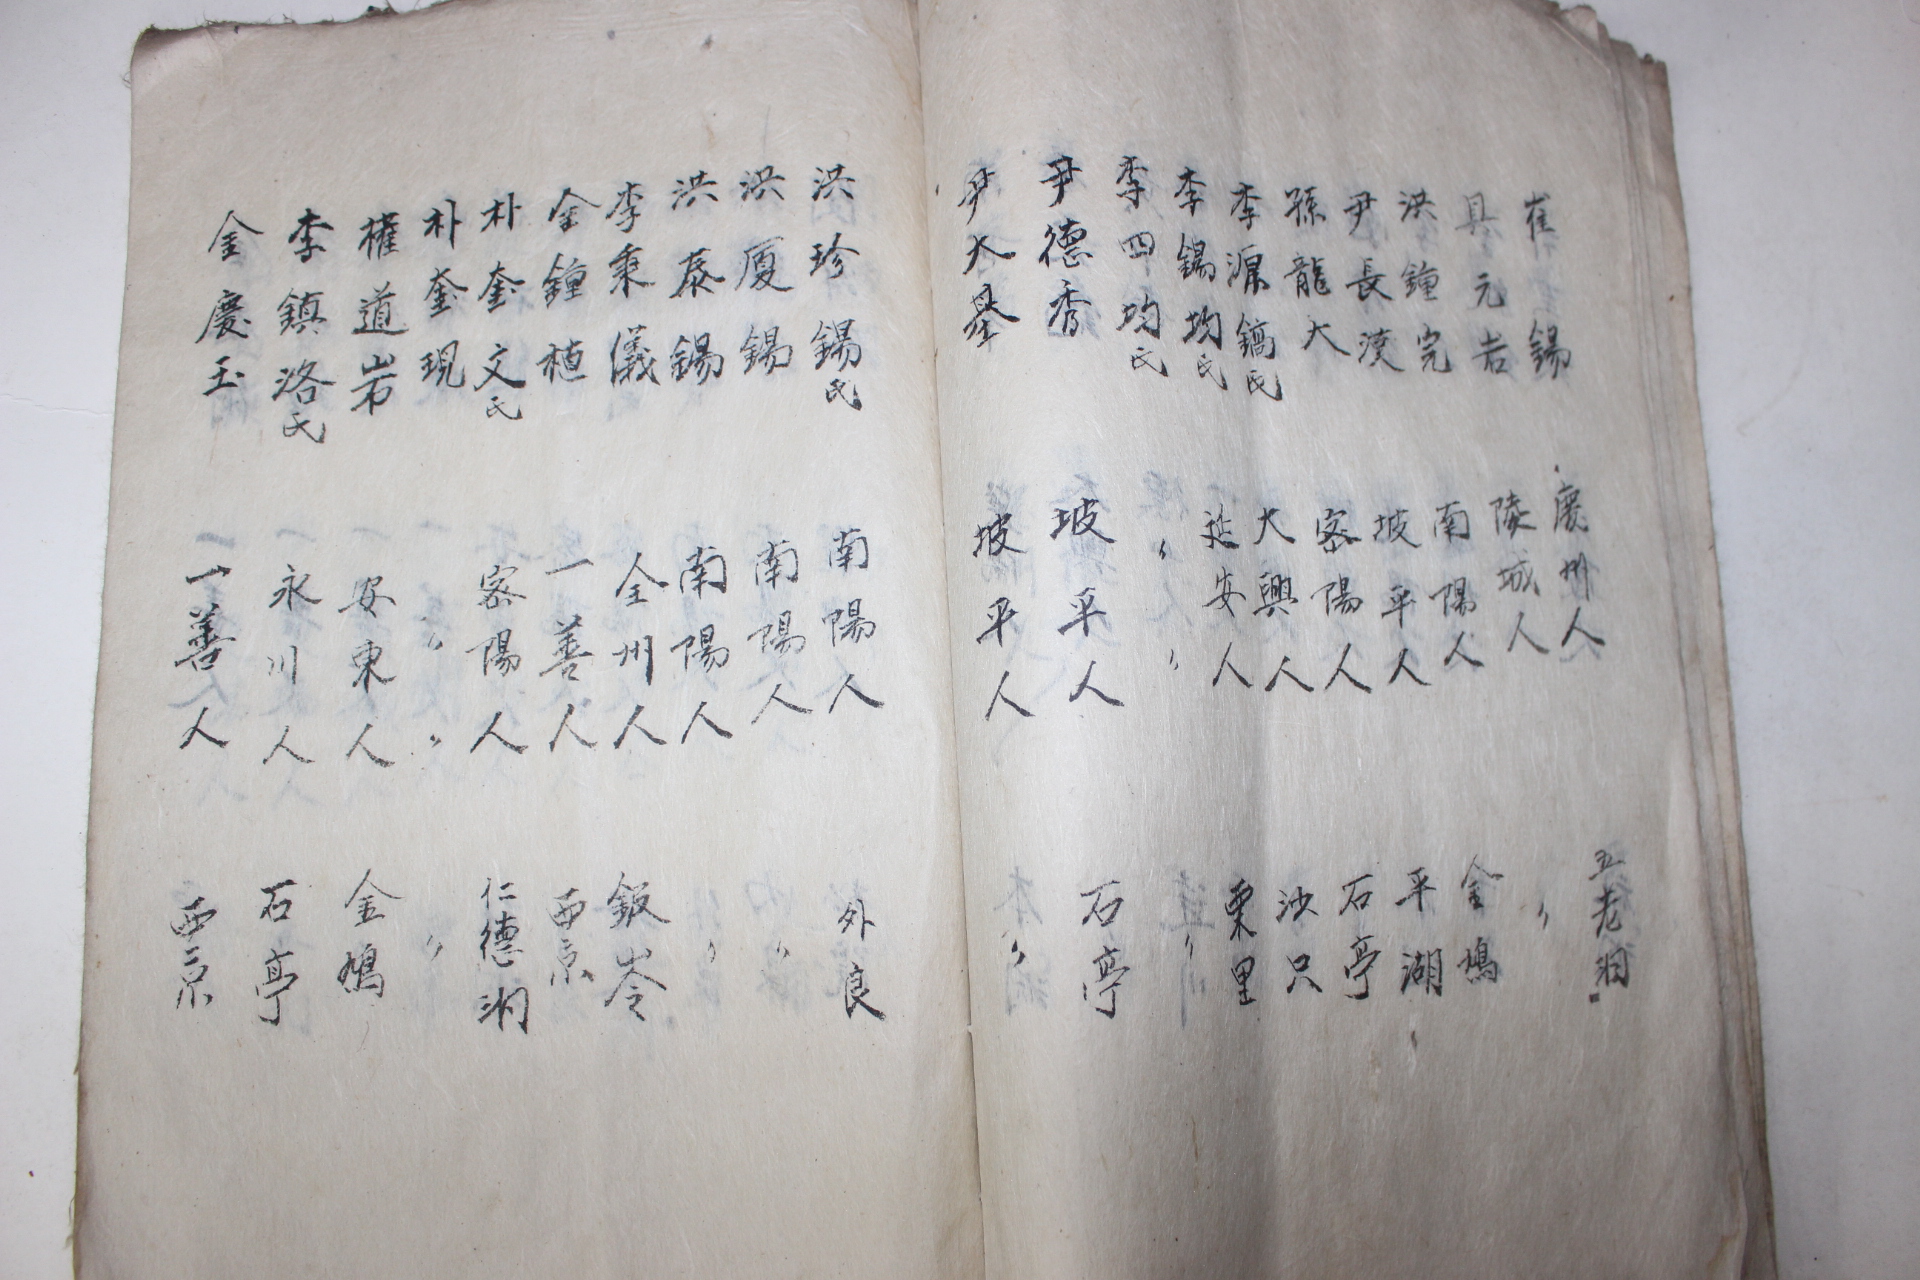 崔 錫 慶州人 五老洞
具元岩 陵城人 〃
洪鐘完 南陽人 金鳩
尹長漢 坡平人 平湖
孫龍大 密陽人 石亭
李源鎬氏 大興人 沙只
李錫均氏 延安人 栗里
李四均氏 〃 〃 〃
尹德秀 坡平人 石亭
尹大基 坡平人 〃
洪珍錫氏 南陽人 外良
洪厦錫 南陽人 〃
洪泰錫 南陽人 〃
李秉儀 全州人 鈑岺
金鐘植 一善人 西京
朴奎文氏 密陽人 仁德洞
朴奎現 〃 〃 〃
權道岩 安東人 金鳩
李鎮洛氏 永川人 石亭
金慶玉 一善人 西京